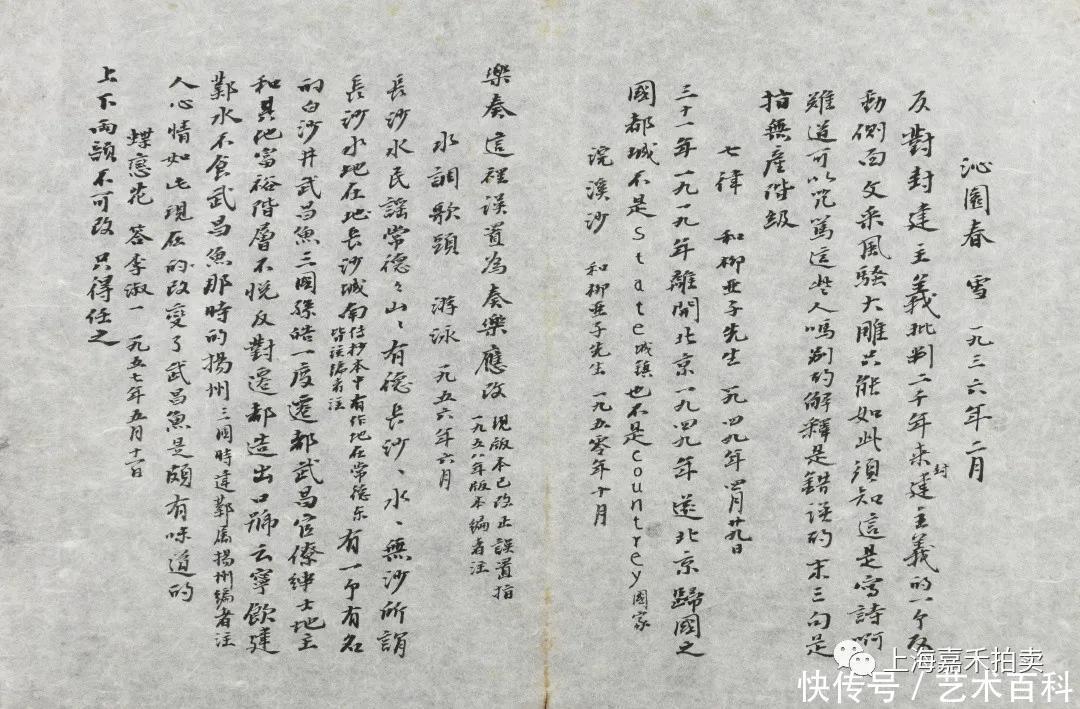 沁園春 雪 一九三六年二月
反對封建主義批判二千年來封建主義的一个反
動側面文采風騷大雕只能如此須知這是寫詩啊
難道可以咒駡這些人嗎別的解釋是錯誤的末三句是
指無產階級
七律 和柳亞子先生 一九四九年四月廿九日
三十一年一九一九年離開北京一九四九年還北京歸國之
國都城不是State城鎮也不是Countrey國家
浣溪沙 和柳亞子先生 一九五零年十月
樂奏這裡误置為奏樂應改 現版本已改正誤置指
一九五八年版本編者注
水調歌頭 游泳 一九五六年六月
長沙水民謡常德々山山有德長沙沙水水無沙所謂
長沙水地在地長沙城南 传抄本中有作地在常德东
皆误编者注
有一个有名
的白沙井武昌魚三国孫皓一度遷都武昌官僚紳士地主
和其他富裕階層不悦反對遷都造出口號云寧飲建
鄴水不食武昌魚那時的揚州 三國時建鄴属揚州编者注
人心情如此現在的改變了武昌魚是頗有味道的
蝶戀花 答李淑一 一九五七年五月十一日
上下兩韻不可改只得任之
上海嘉禾拍卖
快传号／艺术百科